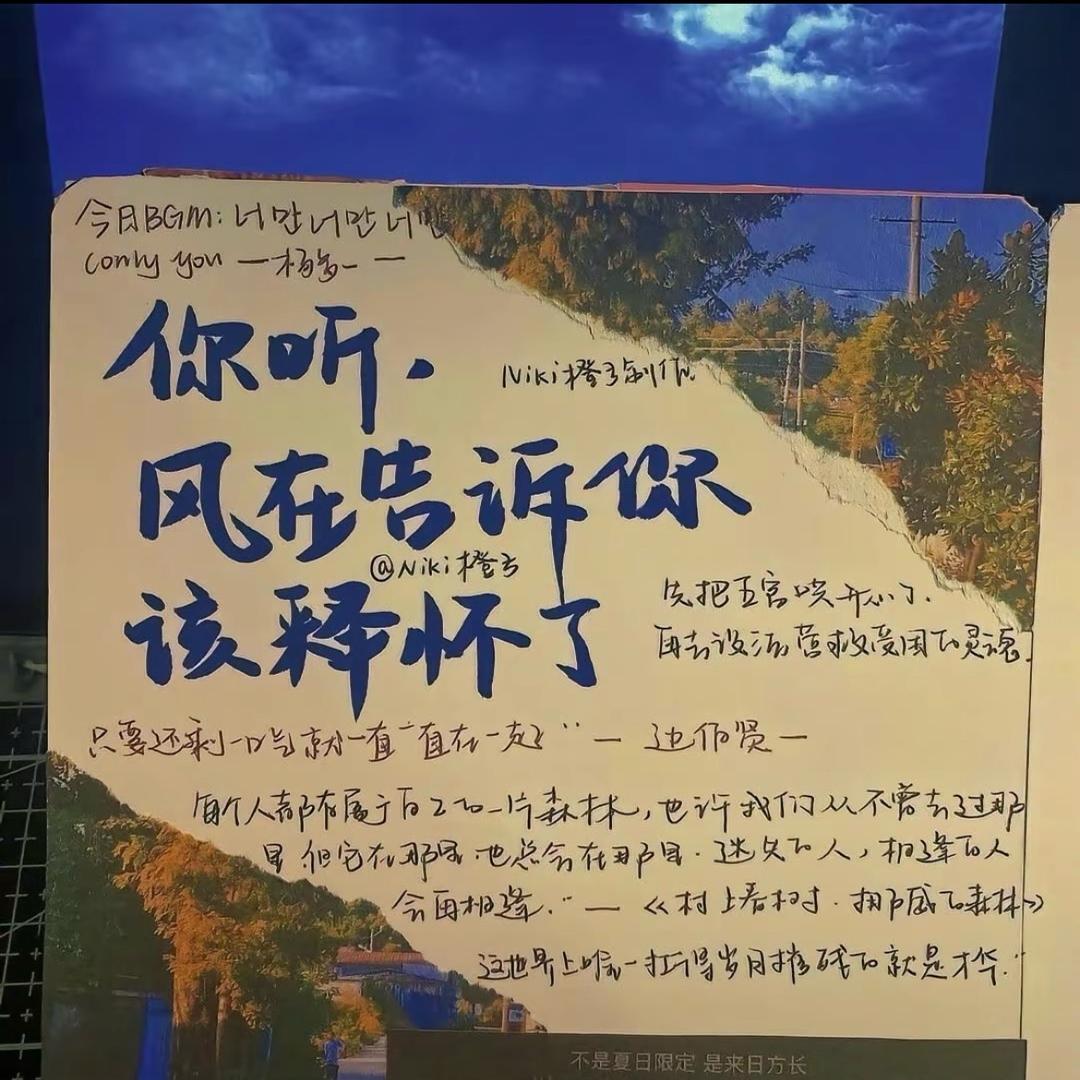 今日BGM: 너만너만너만
(only you — 杨多一 —
你听，
Niki橙子制作
风在告诉你
@Niki橙子
该释怀了
先把五官哄开心了.
再去设法营救受困的灵魂.
只要还剩一口气就一直一直在一起” — 边伯贤 —
每个人都有属于自己的一片森林，也许我们从不曾去过那
里 但它在那里.也总会在那里.迷失的人，相逢的人
会再相逢.” — 《村上春树.挪威的森林》
这世界上唯一扛得岁月摧残的就是才华.”
不是夏日限定 是来日方长